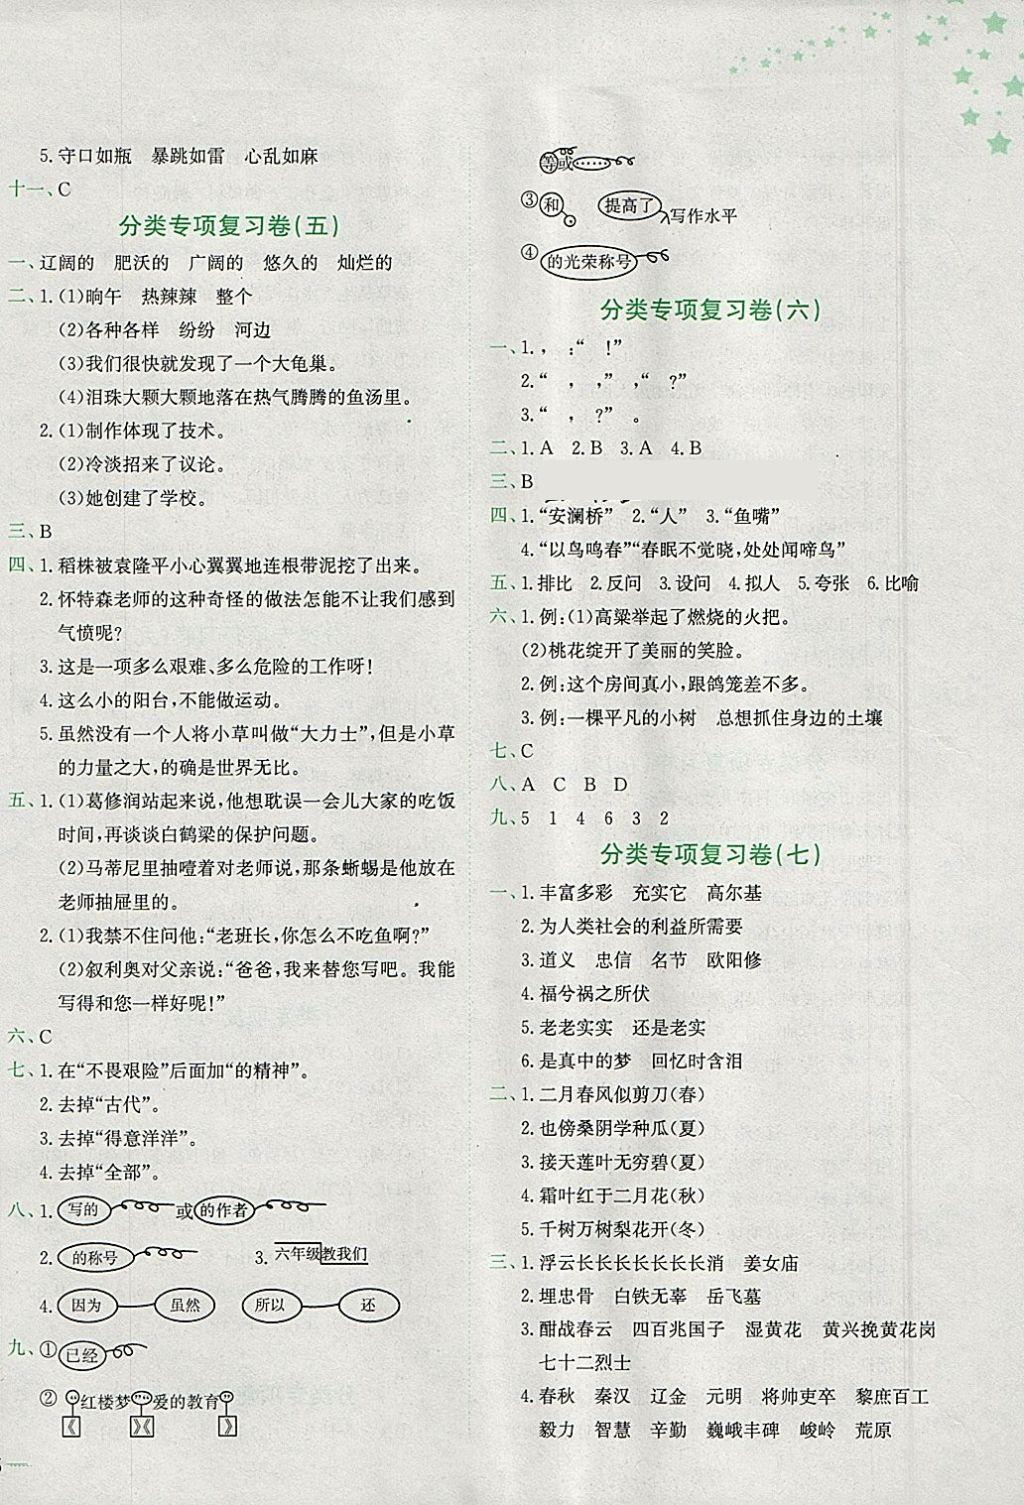 5. 守口如瓶 暴跳如雷 心乱如麻
十一、C
分类专项复习卷(五)
一、辽阔的 肥沃的 广阔的 悠久的 灿烂的
二、1. (1)晌午 热辣辣 整个
(2)各种各样 纷纷 河边
(3)我们很快就发现了一个大龟巢。
(4)泪珠大颗大颗地落在热气腾腾的鱼汤里。
2. (1)制作体现了技术。
(2)冷淡招来了议论。
(3)她创建了学校。
三、B
四、1. 稻株被袁隆平小心翼翼地连根带泥挖了出来。
2. 怀特森老师的这种奇怪的做法怎能不让我们感到
气愤呢?
3. 这是一项多么艰难、多么危险的工作呀!
4. 这么小的阳台,不能做运动。
5. 虽然没有一个人将小草叫做“大力士”,但是小草
的力量之大,的确是世界无比。
五、1. (1)葛修润站起来说,他想耽误一会儿大家的吃饭
时间,再谈谈白鹤梁的保护问题。
(2)马蒂尼里抽噎着对老师说,那条蜥蜴是他放在
老师抽屉里的。
2. (1)我禁不住问他:“老班长,你怎么不吃鱼啊?”
(2)叙利奥对父亲说:“爸爸,我来替您写吧。我能
写得和您一样好呢!”
六、C
七、1. 在“不畏艰险”后面加“的精神”。
2. 去掉“古代”。
3. 去掉“得意洋洋”。
4. 去掉“全部”。
八、1. 写的 或 的作者
2. 的称号 3. 六年级教我们
4. 因为 虽然 所以 还
九、① 已经
② 红楼梦 爱的教育
《 》《 》
等或……
③ 和 提高了 写作水平
④ 的光荣称号
分类专项复习卷(六)
一、1. , :“ !”
2. “ , ,” ,“ ?”
3. “ , ?” 。
二、1. A 2. B 3. A 4. B
三、B
四、1. “安澜桥” 2. “人” 3. “鱼嘴”
4. “以鸟鸣春”“春眠不觉晓,处处闻啼鸟”
五、1. 排比 2. 反问 3. 设问 4. 拟人 5. 夸张 6. 比喻
六、1. 例:(1)高粱举起了燃烧的火把。
(2)桃花绽开了美丽的笑脸。
2. 例:这个房间真小,跟鸽笼差不多。
3. 例:一棵平凡的小树 总想抓住身边的土壤
七、C
八、A C B D
九、5 1 4 6 3 2
分类专项复习卷(七)
一、1. 丰富多彩 充实它 高尔基
2. 为人类社会的利益所需要
3. 道义 忠信 名节 欧阳修
4. 福兮祸之所伏
5. 老老实实 还是老实
6. 是真中的梦 回忆时含泪
二、1. 二月春风似剪刀(春)
2. 也傍桑阴学种瓜(夏)
3. 接天莲叶无穷碧(夏)
4. 霜叶红于二月花(秋)
5. 千树万树梨花开(冬)
三、1. 浮云长长长长长长长消 姜女庙
2. 埋忠骨 白铁无辜 岳飞墓
3. 酣战春云 四百兆国子 湿黄花 黄兴挽黄花岗
七十二烈士
4. 春秋 秦汉 辽金 元明 将帅吏卒 黎庶百工
毅力 智慧 辛勤 巍峨丰碑 峻岭 荒原